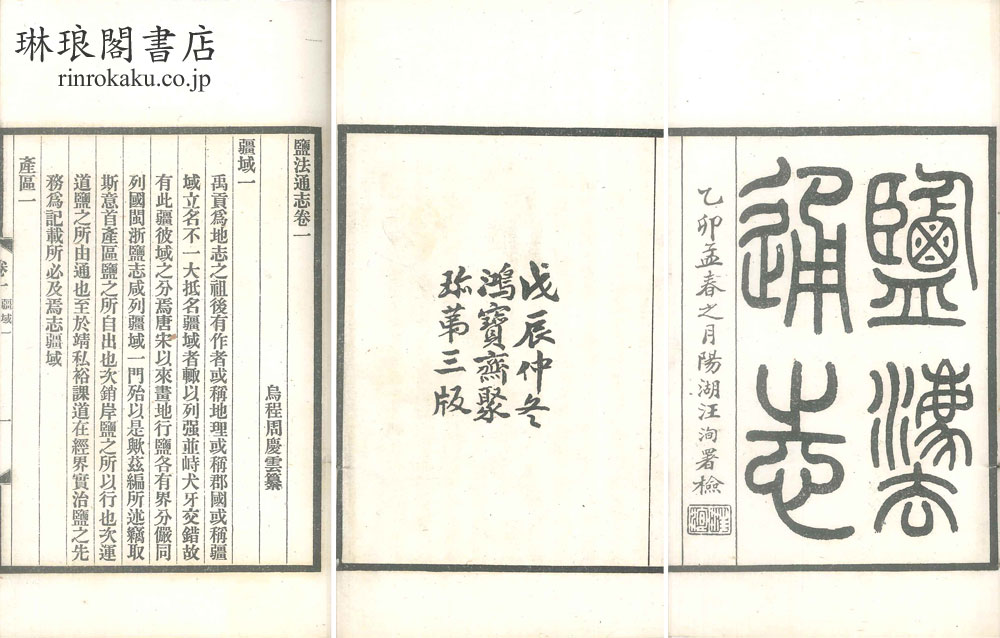 琳琅閣書店
rinrokaku.co.jp
鹽法
通志
乙卯孟春之月陽湖汪洵署檢
戊辰仲冬
鴻寶齋聚
珍第三版
鹽法通志卷一
烏程周慶雲纂
疆域一
禹貢爲地志之祖後有作者或稱地理或稱郡國或稱疆
域立名不一大抵名疆域者輒以列强並峙犬牙交錯故
有此疆彼域之分焉唐宋以來畫地行鹽各有界分儼同
列國閩浙鹽志咸列疆域一門殆以是歟茲編所述竊取
斯意首產區鹽之所自出也次銷岸鹽之所以行也次運
道鹽之所由通也至於靖私裕課道在經界實治鹽之先
務爲記載所必及焉志疆域
產區一
卷一 疆域一
一